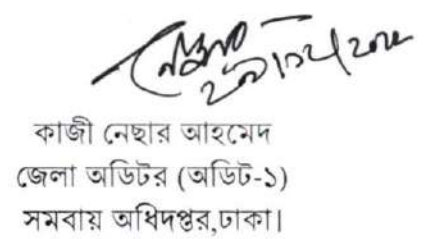 কাজী নেছার আহমেদ
জেলা অডিটর (অডিট-১)
সমবায় অধিদপ্তর,ঢাকা।